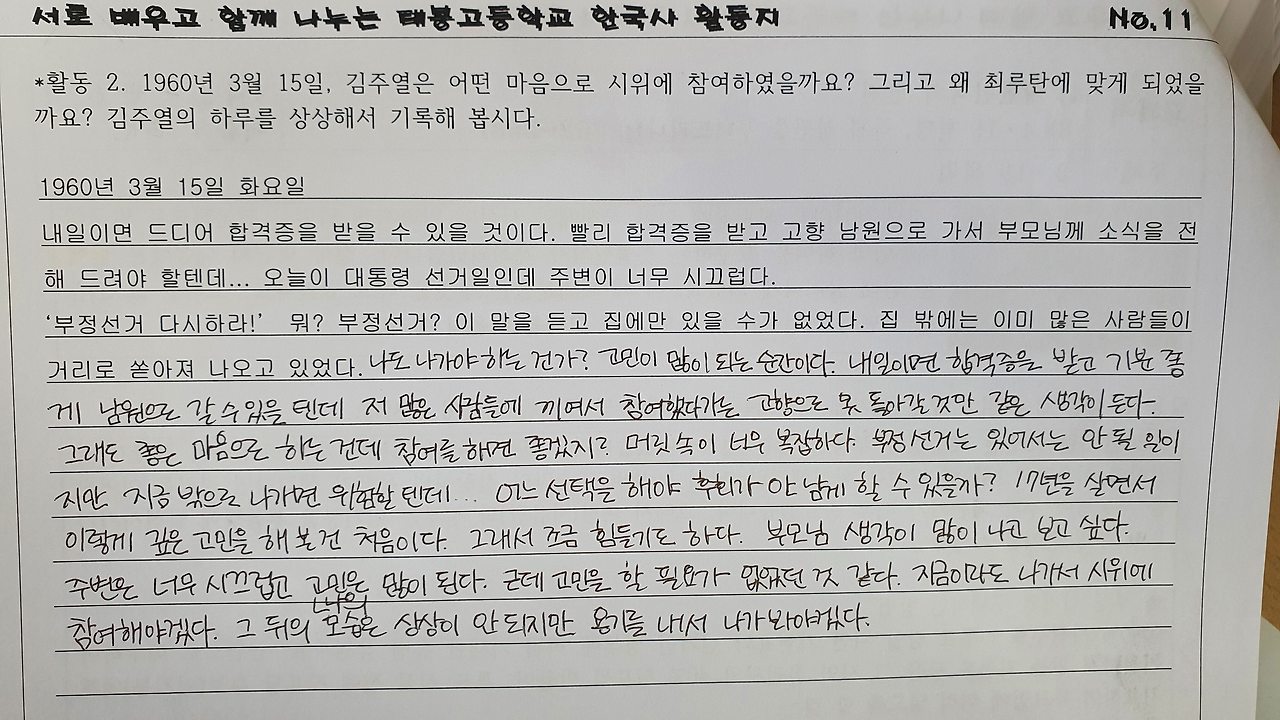 서로 배우고 함께 나누는 태봉고등학교 한국사 활동지 No.11
*활동 2. 1960년 3월 15일, 김주열은 어떤 마음으로 시위에 참여하였을까요? 그리고 왜 최루탄에 맞게 되었을
까요? 김주열의 하루를 상상해서 기록해 봅시다.
1960년 3월 15일 화요일
내일이면 드디어 합격증을 받을 수 있을 것이다. 빨리 합격증을 받고 고향 남원으로 가서 부모님께 소식을 전
해 드려야 할텐데... 오늘이 대통령 선거일인데 주변이 너무 시끄럽다.
‘부정선거 다시하라!’ 뭐? 부정선거? 이 말을 듣고 집에만 있을 수가 없었다. 집 밖에는 이미 많은 사람들이
거리로 쏟아져 나오고 있었다. 나도 나가야 하는 건가? 고민이 많이 되는 순간이다. 내일이면 합격증을 받고 기분 좋
게 남원으로 갈 수 있을 텐데 저 많은 사람들에 끼여서 참여했다가는 고향으로 못 돌아갈 것만 같은 생각이 든다.
그래도 좋은 마음으로 하는 건데 참여를 하면 좋겠지? 머릿속이 너무 복잡하다. 부정선거는 있어서는 안 될 일이
지만 지금 밖으로 나가면 위험할 텐데... 어느 선택을 해야 후회가 안 남게 할 수 있을까? 17년을 살면서
이렇게 깊은 고민을 해 본 건 처음이다. 그래서 조금 힘들기도 하다. 부모님 생각이 많이 나고 보고 싶다.
주변은 너무 시끄럽고 고민은 많이 된다. 근데 고민을 할 필요가 없었던 것 같다. 지금이라도 나가서 시위에
참여해야겠다. 그 뒤의 나의 모습은 상상이 안 되지만 용기를 내서 나가 봐야겠다.